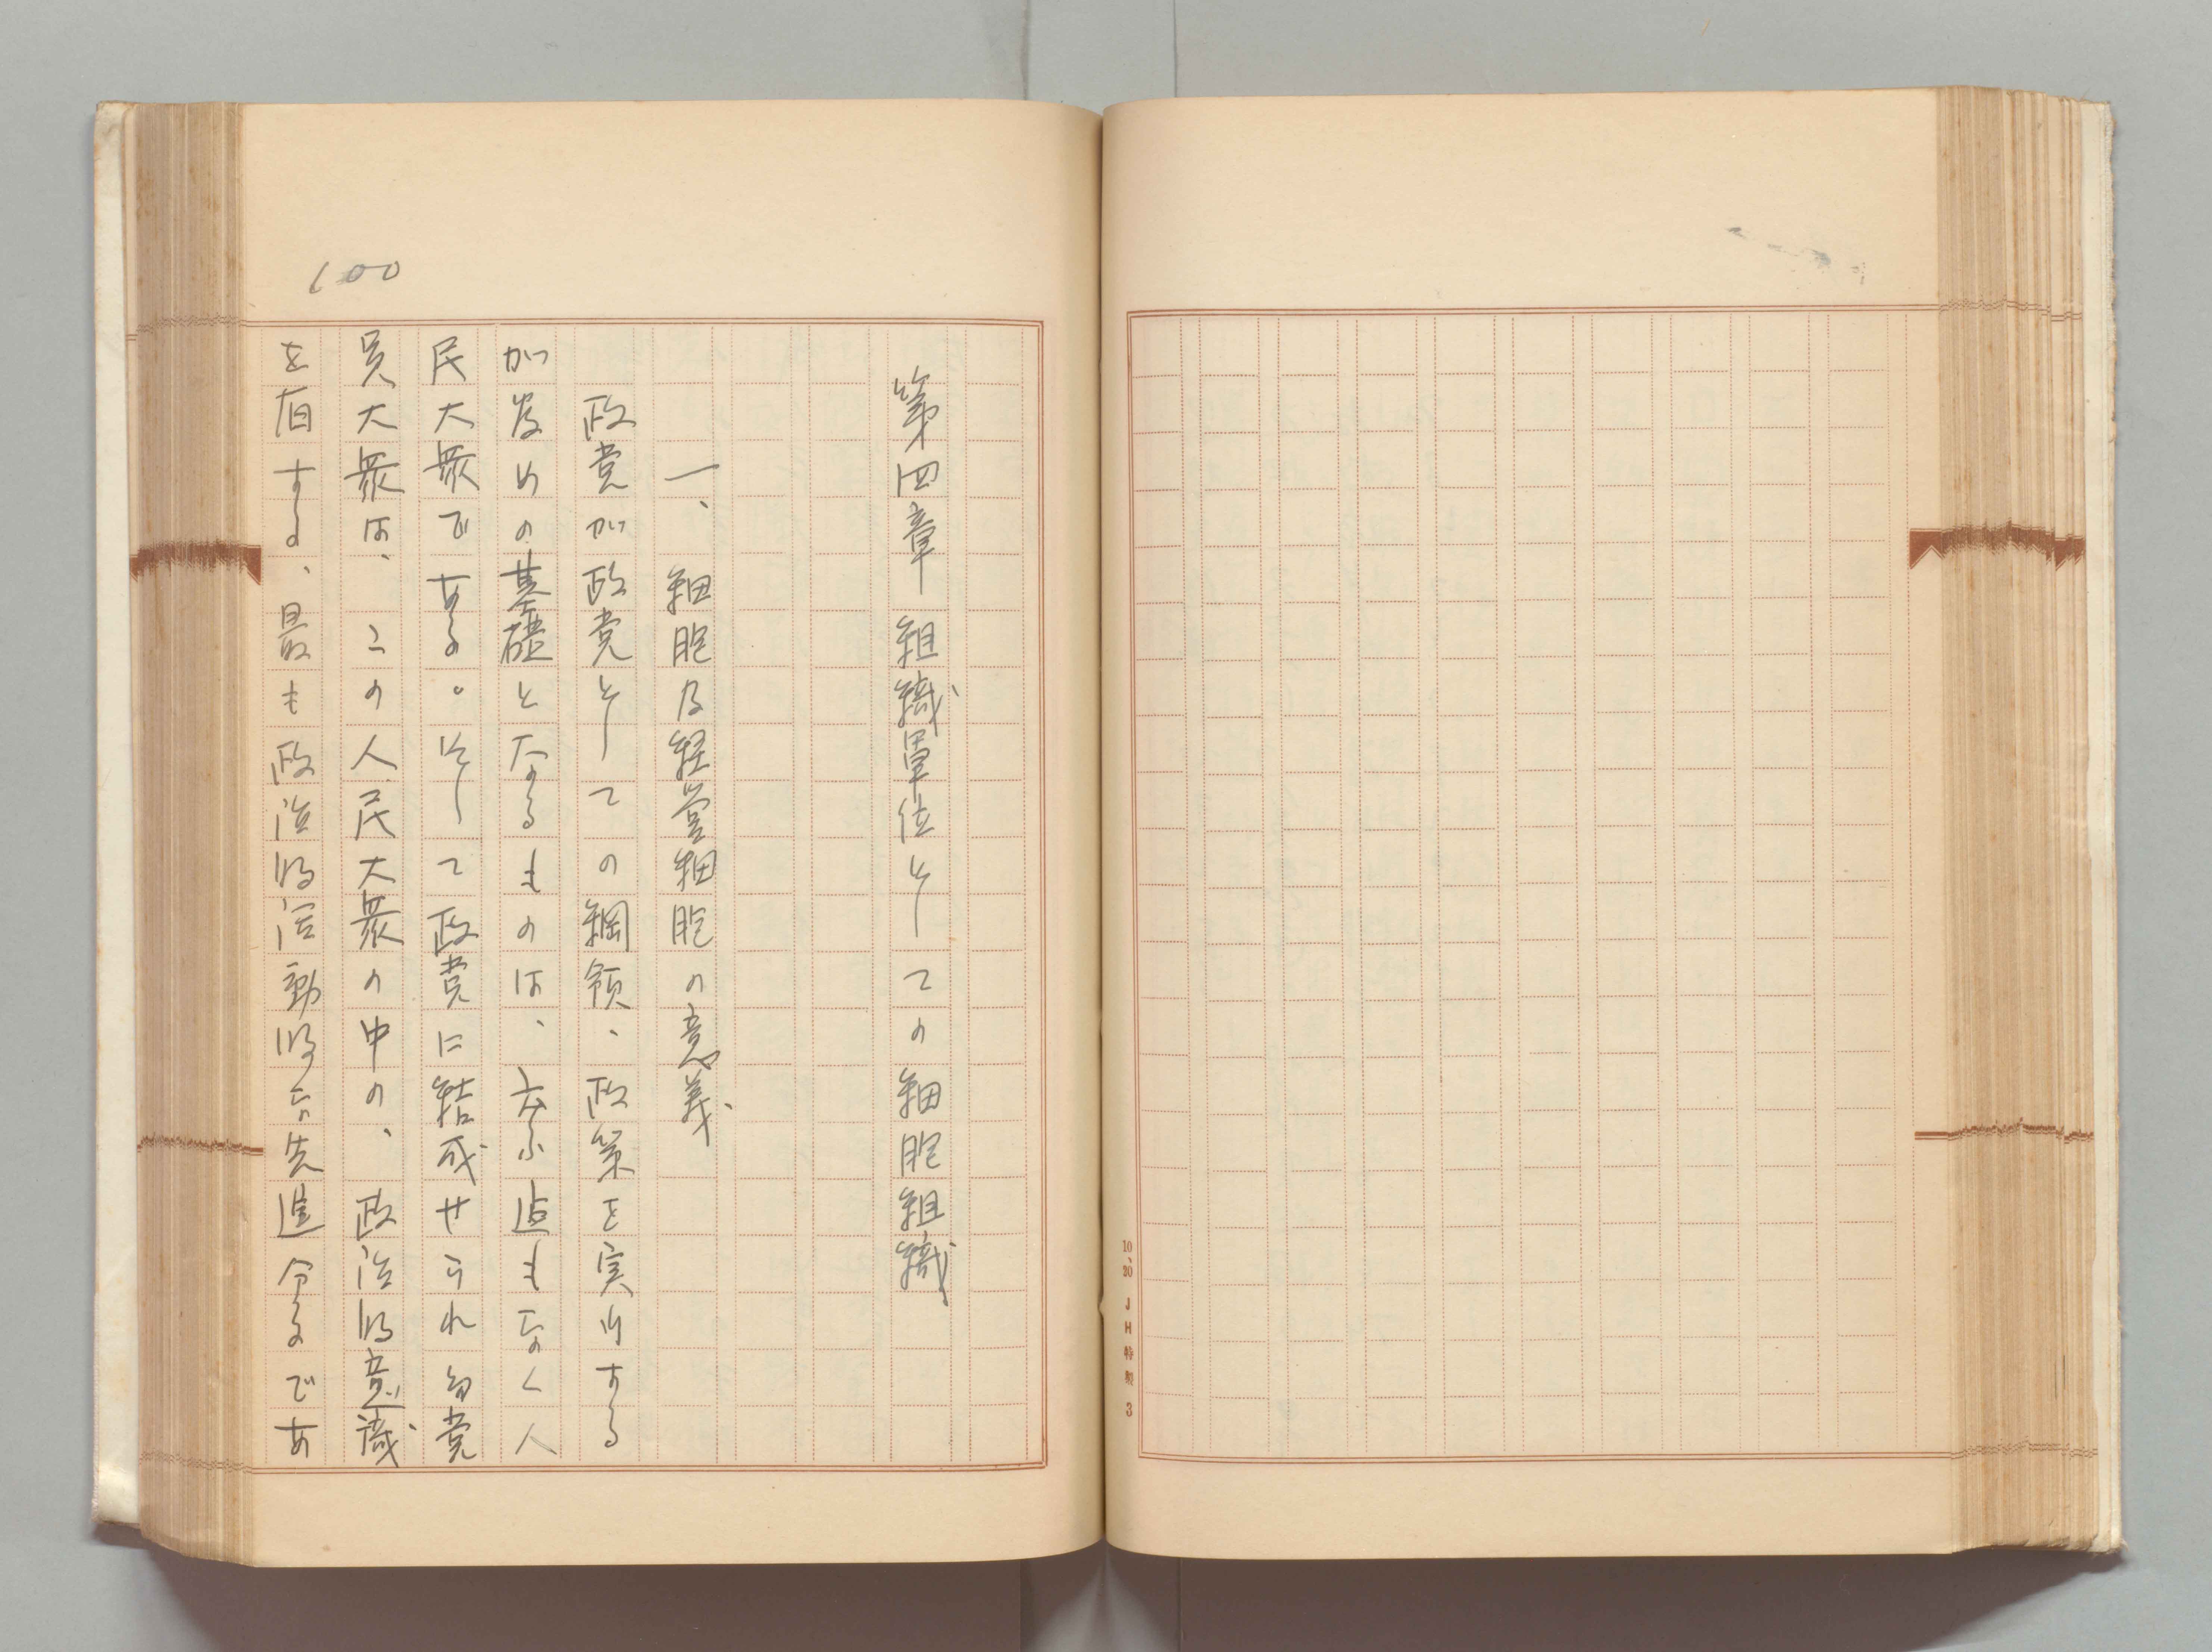 10、20 JH特製 3
100
第四章 組織單位としての細胞組織
一、細胞及経営細胞の意義
政党が政党としての綱領、政策を実行する
が為めの基礎となるものは、云ふ迄もなく人
民大衆である。そして政党に結成せられ党
員大衆は、この人民大衆の中の、政治的意識
を有する、最も政治的活動的な先進分子であ